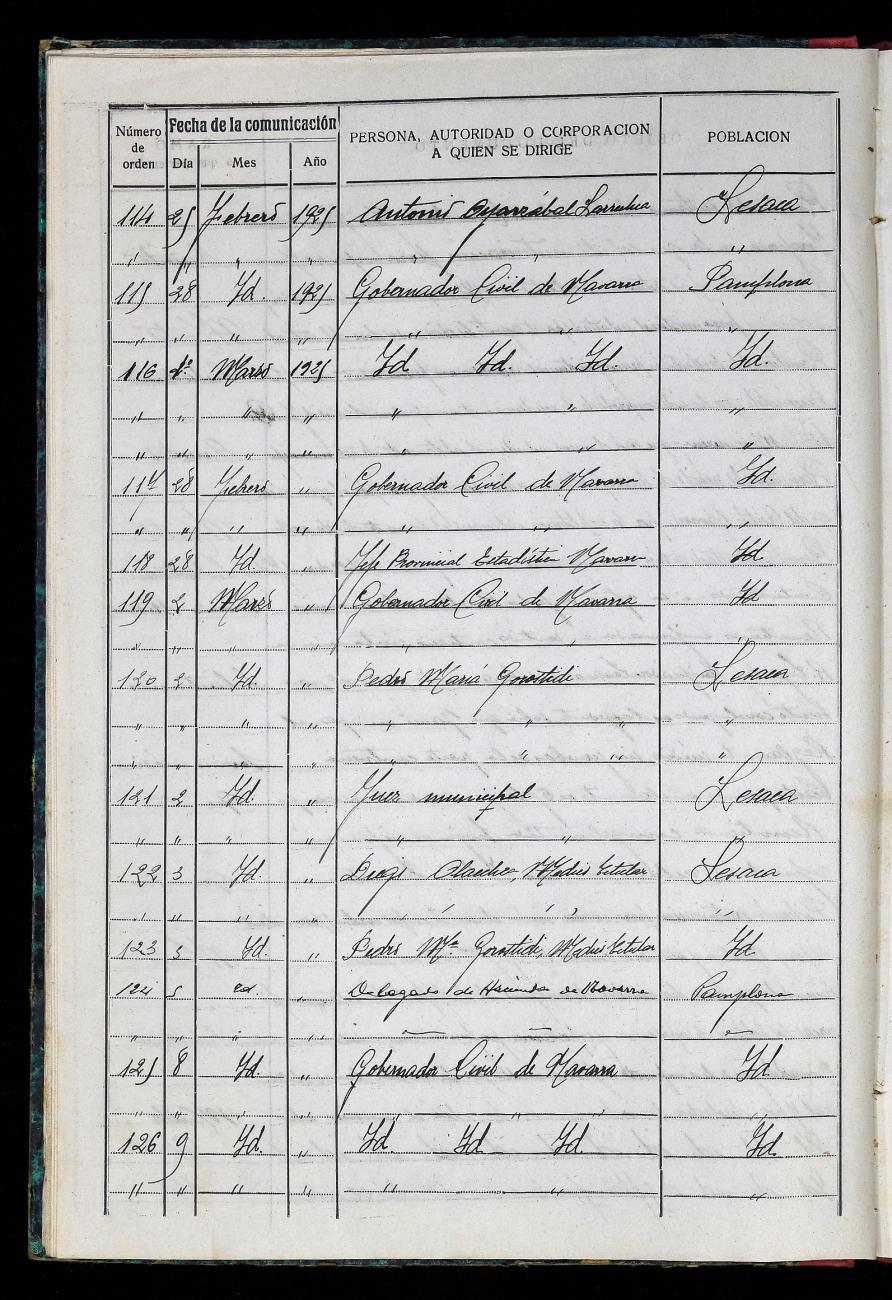 Número de orden | Fecha de la comunicación | PERSONA, AUTORIDAD O CORPORACION A QUIEN SE DIRIGE | POBLACION
Día | Mes | Año
114 25 Febrero 1925 Antonio Oyarzábal Larralua Lesaca
„ „ „ „ „ „ „
115 28 Id. 1925 Gobernador Civil de Navarra Pamplona
„ „ „ „ „ „
116 1º Marzo 1925 Id Id. Id. Id.
„ „ „ „ „ „ „
„ „ „ „ „ „
117 28 Febrero „ Gobernador Civil de Navarra Id.
„ „ „ „ „ „ „
118 28 Id. „ Jefe Provincial Estadística Navarra Id
119 2 Marzo „ Gobernador Civil de Navarra Id
„ „ „ „ „ „
120 2 Id. „ Pedro María Gorostidi Lesaca
„ „ „ „ „ „ „ „
„ „ „ „ „ „ „ „
121 2 Id. „ Juez municipal Lesaca
„ „ „ „ „ „ „
122 3 Id. „ Diego Médico titular Lesaca
„ „ „ „ „ „ „
123 5 Id. „ Pedro Mª. Gorostidi, Médico titular Id
124 5 id. „ Delegado de Hacienda de Navarra Pamplona
„ „ „ „ „ „ „
125 8 Id „ Gobernador Civil de Navarra Id
„ „ „ „ „ „ „
126 9 Id. „ Id. Id Id. Id.
„ „ „ „ „ „ „